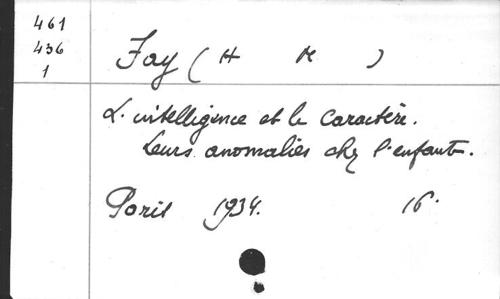 461
436
1
Fay (H M)
L'intelligence et le caractère.
Leurs anomalies chez l'enfant.
Paris 1934. 16°